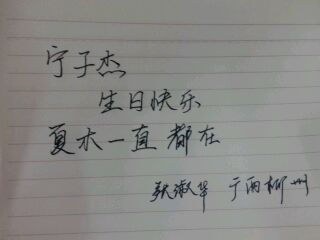 宁子杰
生日快乐
夏木一直都在
张淑华 于两柳州